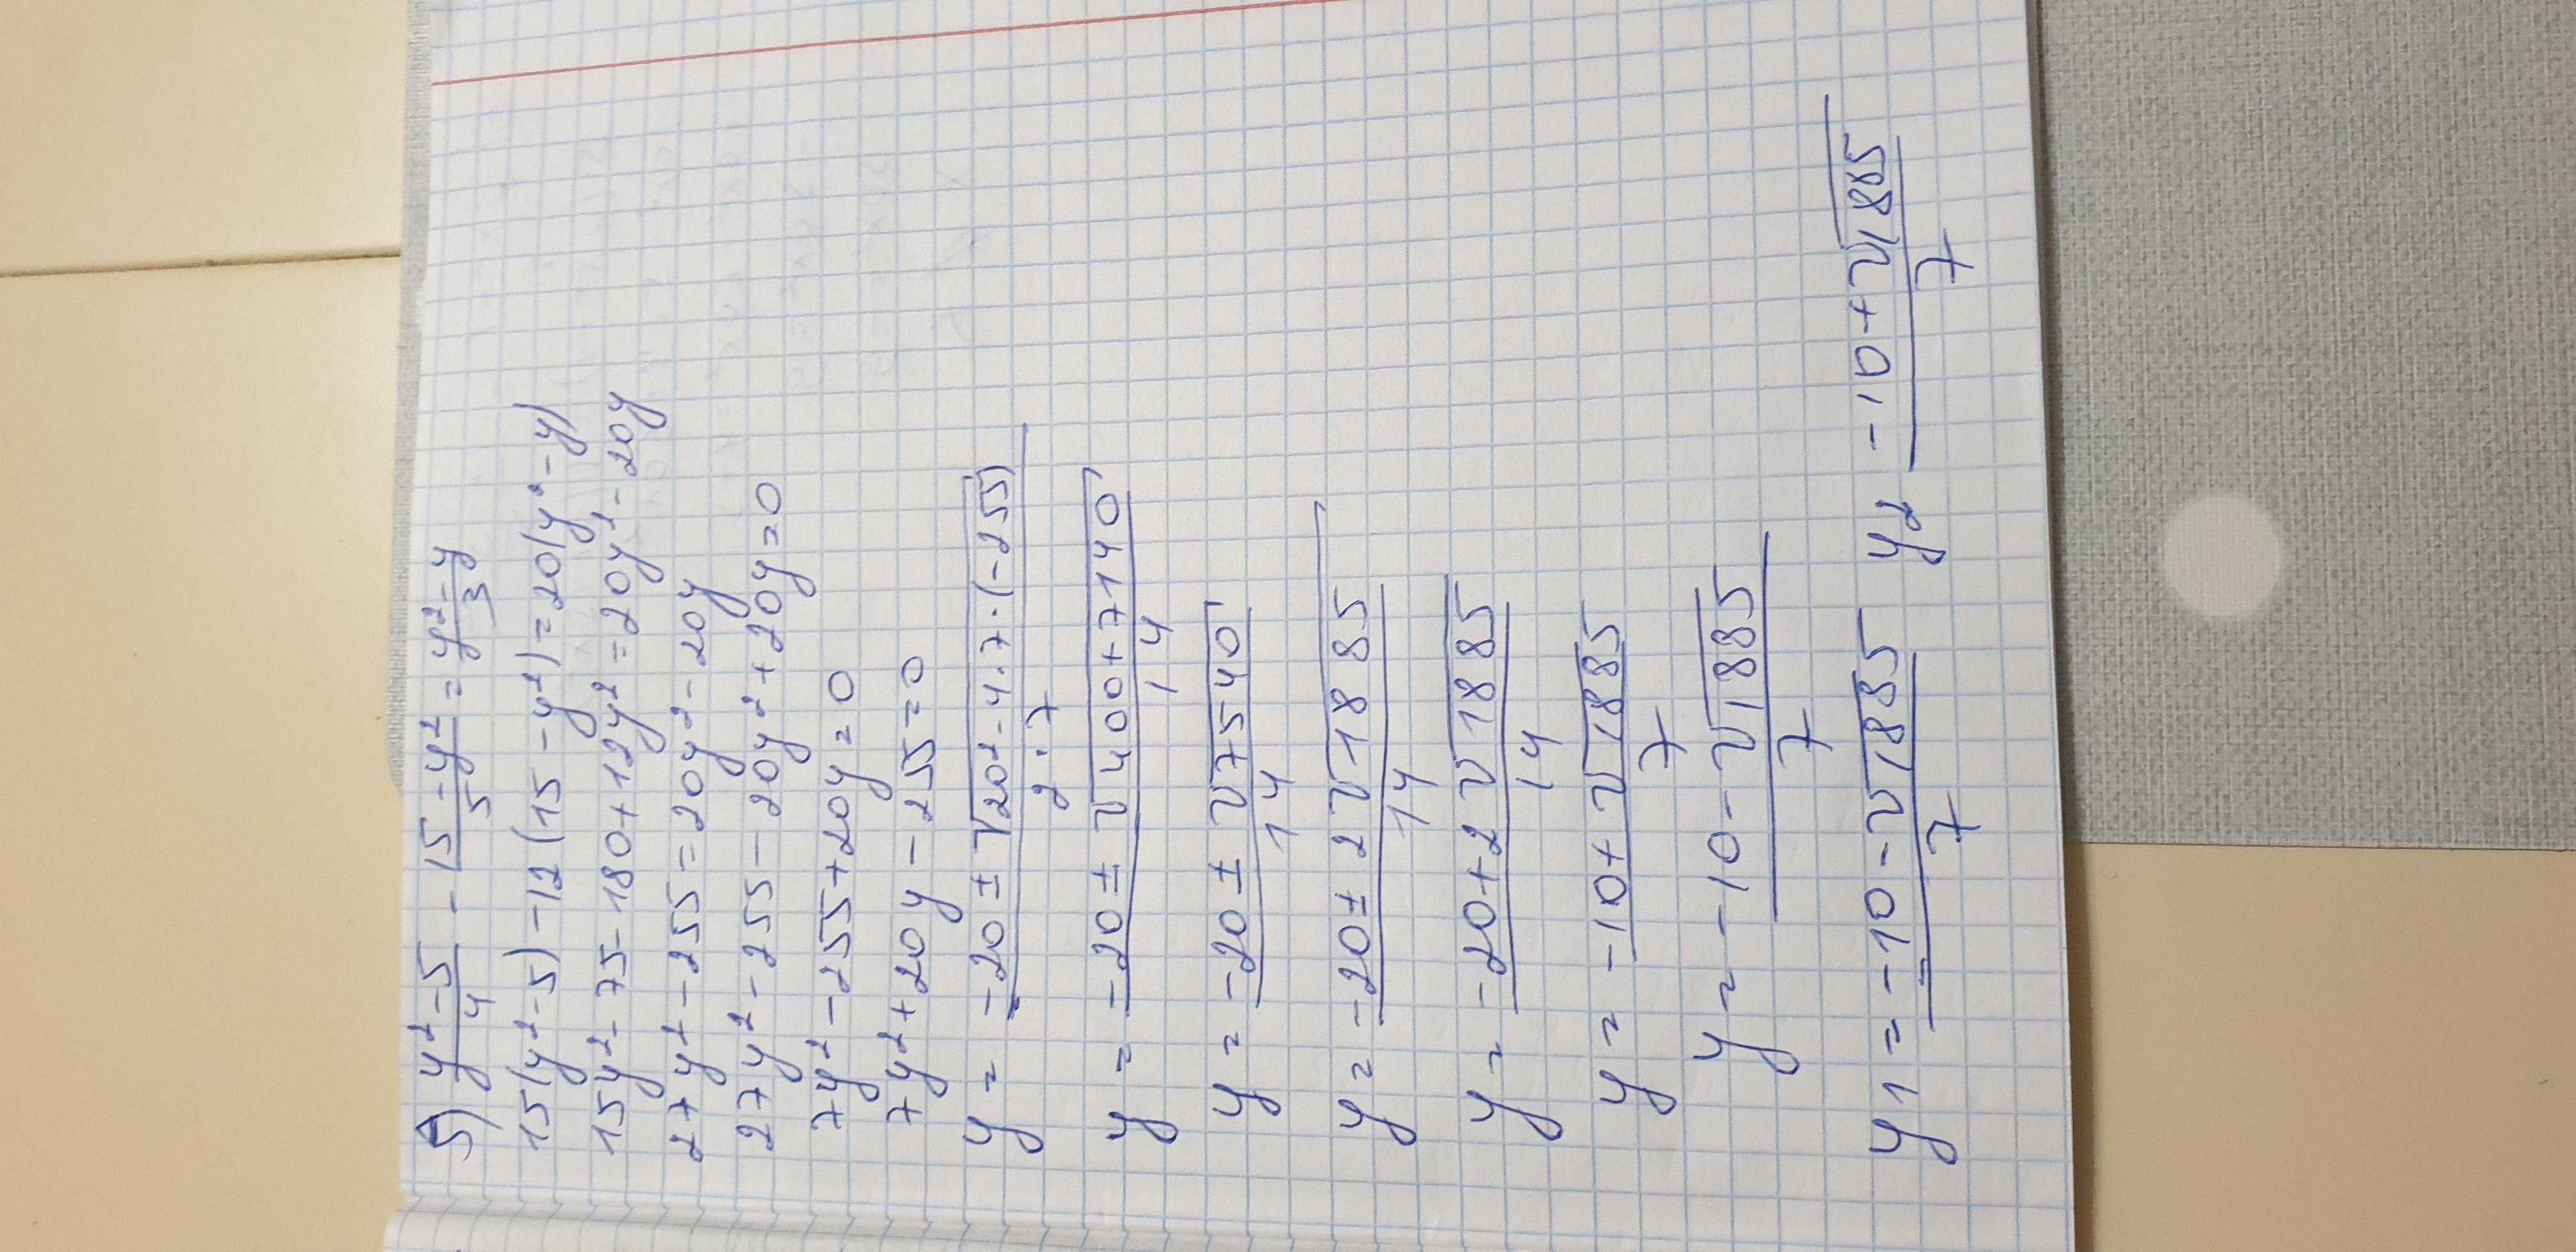 5) y²-5/4 - 15-y²/5 = y²-y/3
15(y²-5)-12(15-y²)=20(y²-y)
15y²-75-180+12y²=20y²-20y
27y²-255=20y²-20y
27y²-255-20y²+20y=0
7y²-255+20y=0
7y²+20y-255=0
y= -20±√20²-4·7·(-255)/2·7
y= -20±√400+7140/14
y= -20±√7540/14
y= -20±2√1885/14
y= -20+2√1885/14
y= -10+√1885/7
y= -10-√1885/7
y1= -10-√1885/7 y2 -10+√1885/7